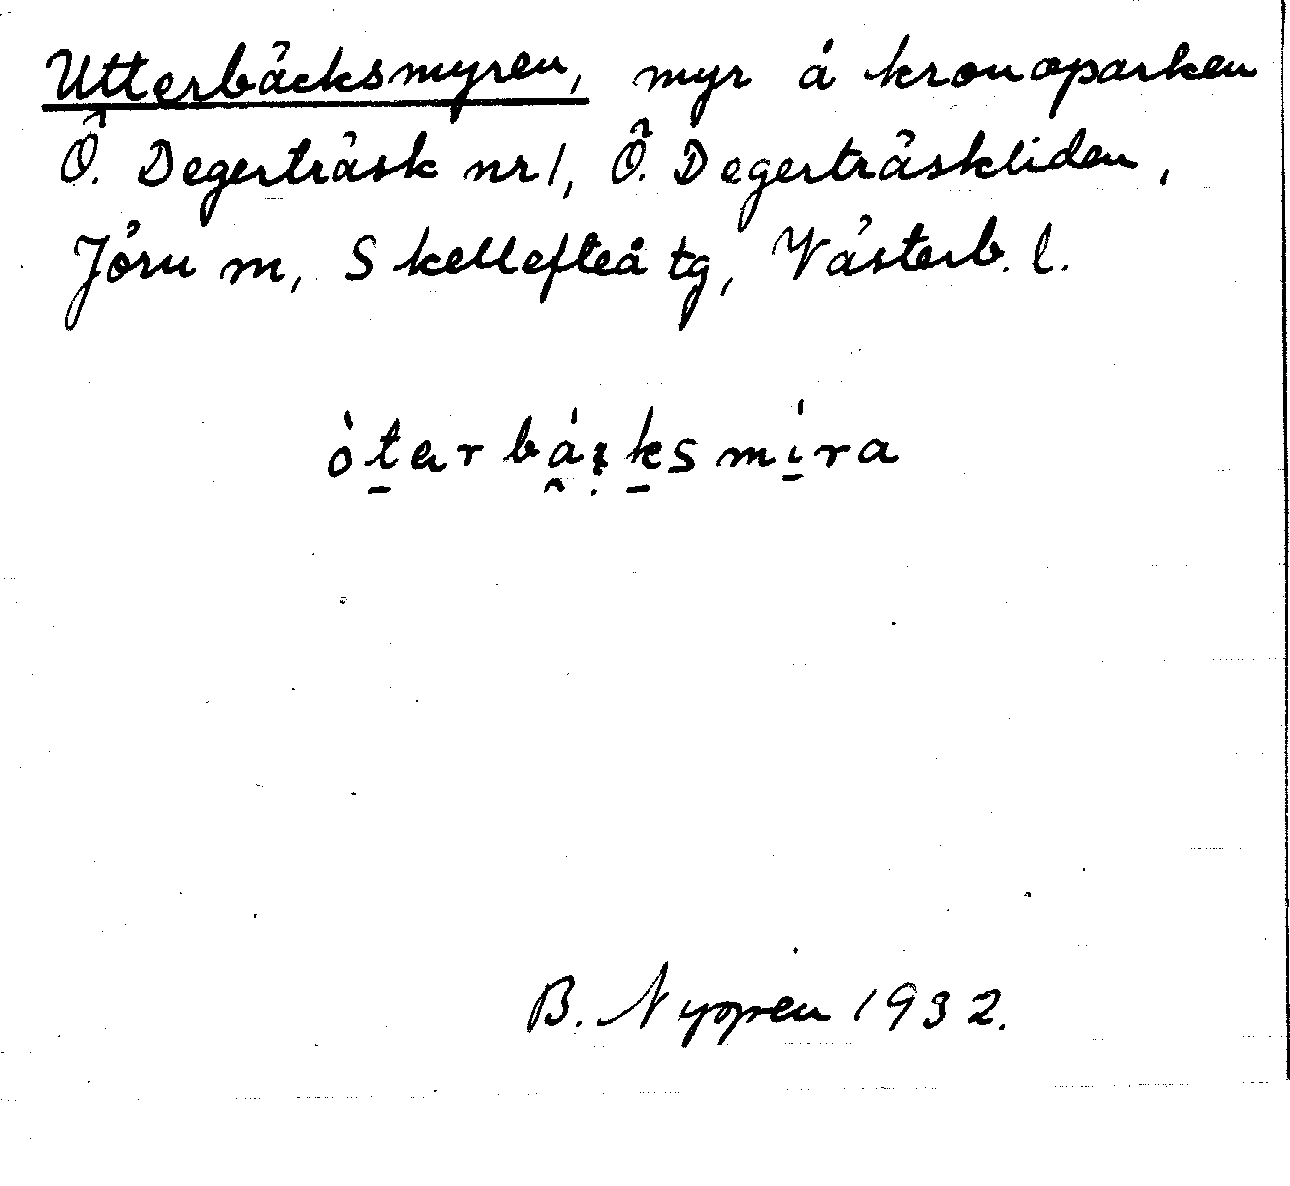 Utterbäcksmyren, myr å kronoparken
Ö. Degerträsk nr 1, Ö. Degerträskliden,
Jörn m, Skellefteå tg, Västerb. l.
B. Nyppen 1932.